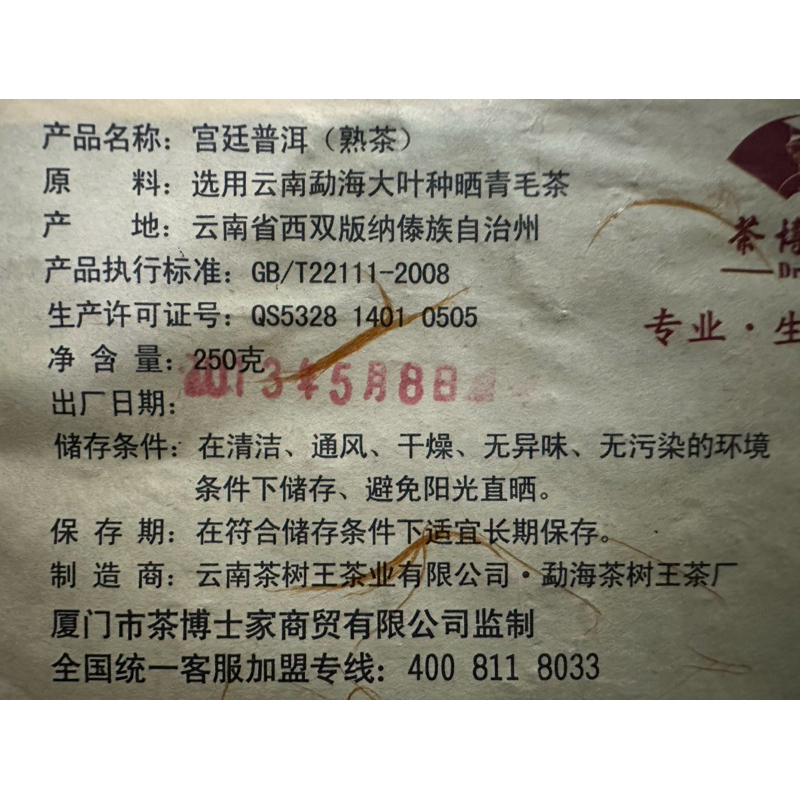 产品名称：宫廷普洱（熟茶）
原 料：选用云南勐海大叶种晒青毛茶
产 地：云南省西双版纳傣族自治州
产品执行标准：GB/T22111-2008
生产许可证号：QS5328 1401 0505
净 含 量：250克
2013年5月8日
出厂日期：
储存条件：在清洁、通风、干燥、无异味、无污染的环境
条件下储存、避免阳光直晒。
保 存 期：在符合储存条件下适宜长期保存。
制 造 商：云南茶树王茶业有限公司·勐海茶树王茶厂
厦门市茶博士家商贸有限公司监制
全国统一客服加盟专线：400 811 8033
茶博
Dr
专业·生